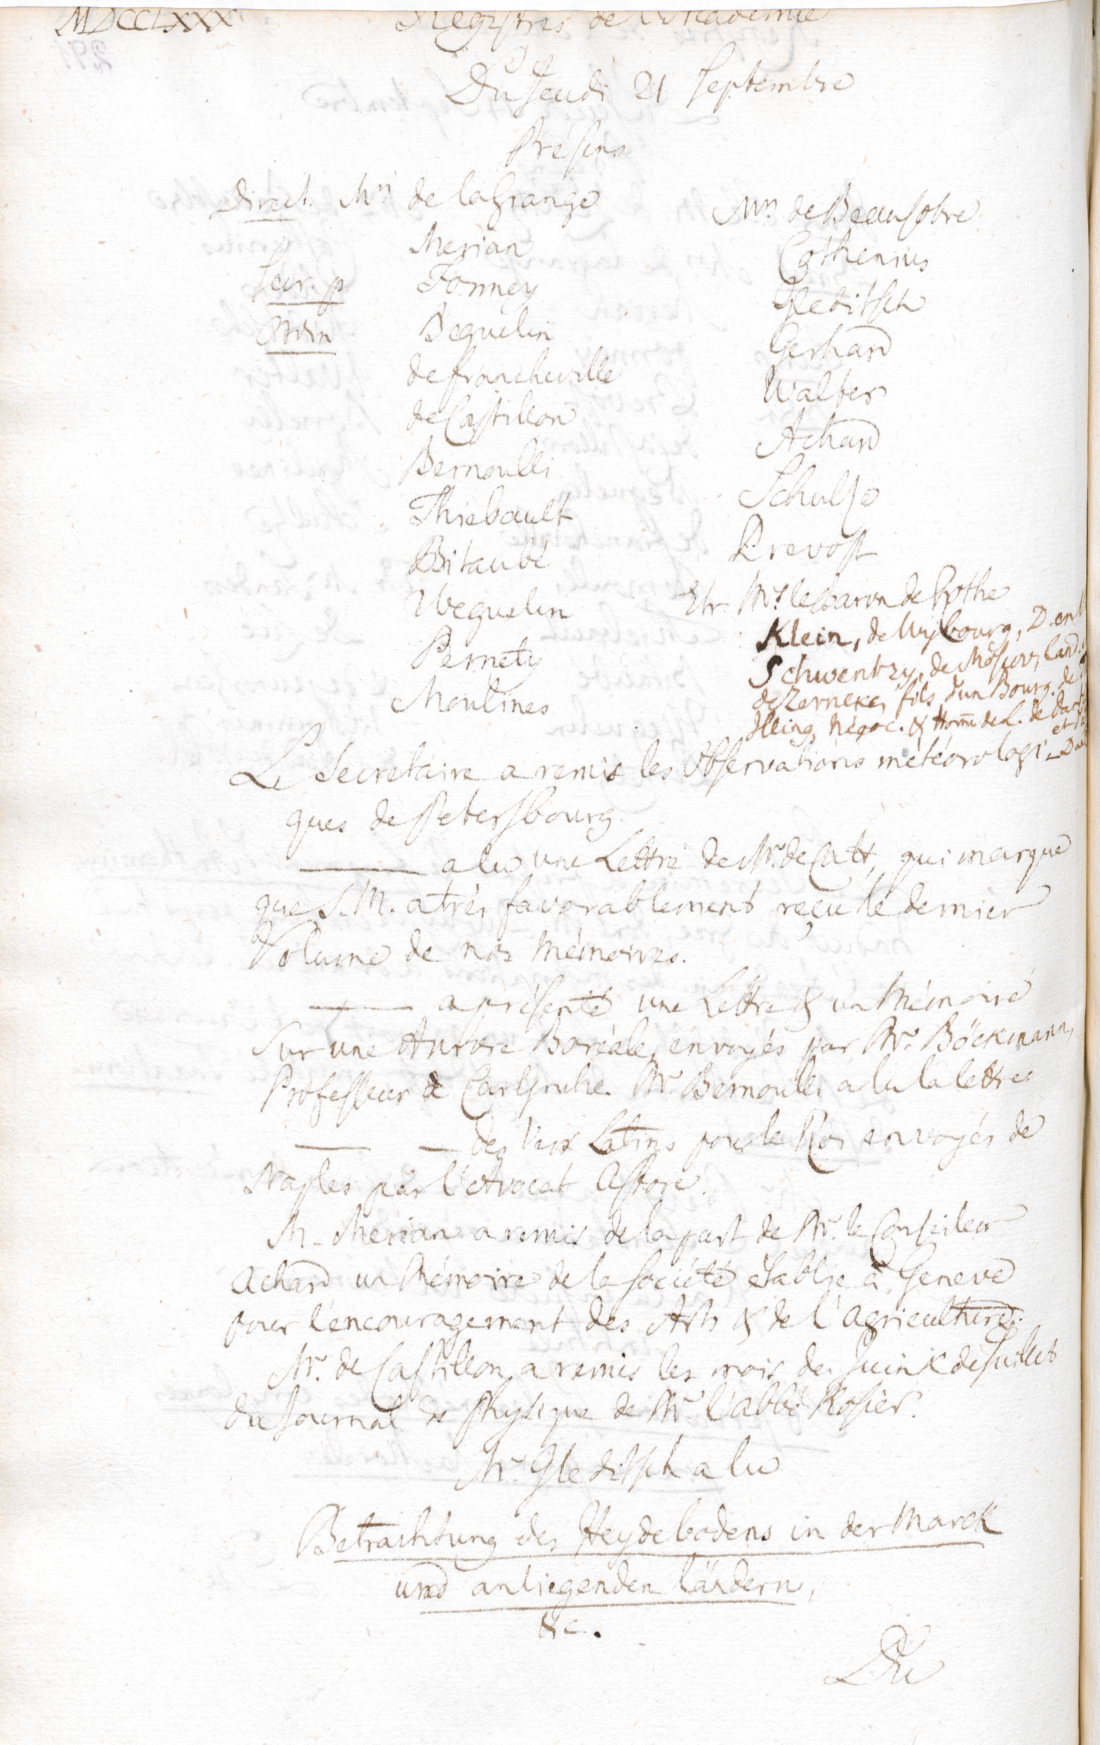 MDCCLXXX Registres de l'Academie
Du Jeudi 21 Septembre
Présens
Direct. Mrs de la Grange
Merian
Secr. p. Formey
Ordin Beguelin
de Francheville
de Castillon
Bernoulli
Thiebault
Bitaubé
Weguelin
Pernety
Moulines
Mrs de Beausobre
Cothenius
Gleditsch
Gerhard
Walter
Achard
Schulze
Prevost
Etr. Mrs le Baron de Gothe
Klein, de D. en
Schwentzy, de land.
de Zerneke, fils d'un Bourg. de
Illing, Négoc. & Hom̄e de L. de
et
Le Secretaire a remis les Observations météorologi-
ques de Petersbourg.
——— a lu une Lettre de Mr. de Catt, qui marque
que S. M. a très favorablement reçu le dernier
Volume de nos Mémoires.
——— a présenté une Lettre & un Mémoire
sur une Aurore Boréale, envoyés par Mr. Böckmann,
Professeur à Carlsruhe. Mr. Bernoulli a lu la lettre
——— des Vers Latins pour le Roi envoyés de
Naples par l'Avocat Astore.
M. Merian a remis de la part de Mr. le Conseiller
Achard un Mémoire de la Société établie à Geneve
pour l'encouragement des Arts & de l'Agriculture.
Mr. de Castillon a remis les mois de Juin & de Juillet
du Journal de Physique de Mr. l'Abbé Rosier.
Mr. Gleditsch a lu
Betrachtung des Heydebodens in der Marck
und anliegenden Ländern,
&c.
Du